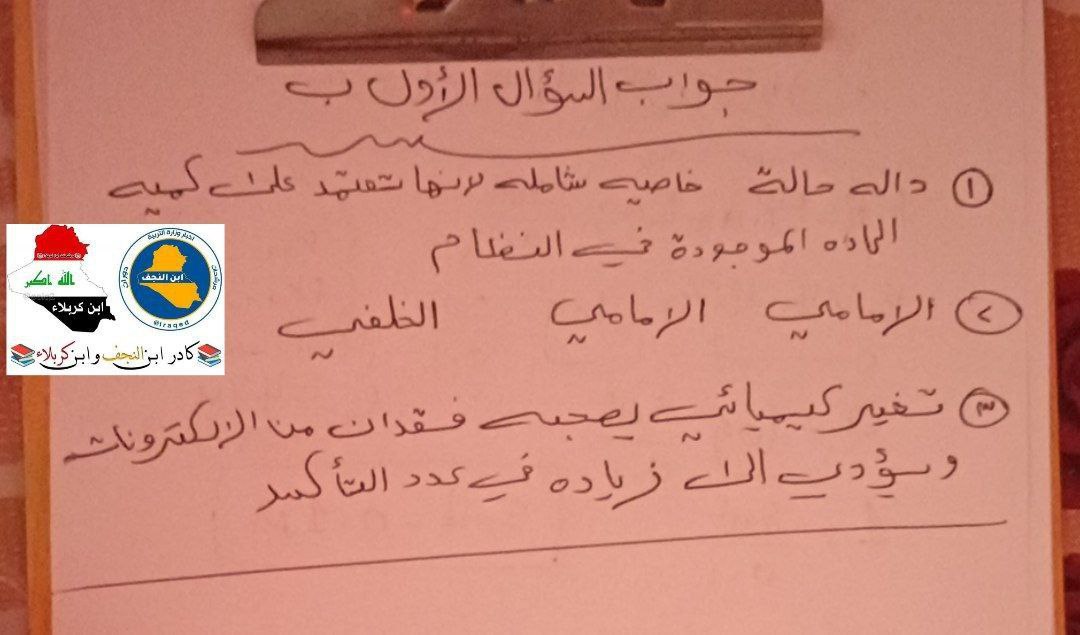 جواب السؤال الأول ب
① داله حالة خاصيه شامله لانها تعتمد على كميه
الماده الموجودة في النظام
② الامامي الامامي الخلفي
③ تغير كيميائي يصحبه فقدان من الالكترونات
ويؤدي الى زياده في عدد التأكسد
الله اكبر
ابن كربلاء
اخبار وزارة التربية
ابن النجف
@iraqed
كادر ابن النجف وابن كربلاء